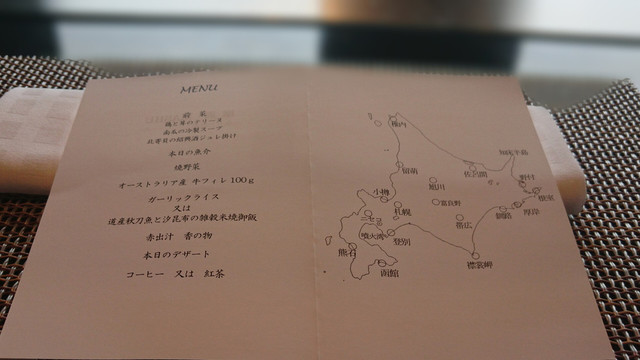 MENU
前菜
南瓜の冷製スープ
北寄貝の紹興酒ジュレ掛け
本日の魚介
焼野菜
オーストラリア産 牛フィレ100g
ガーリックライス
又は
道産秋刀魚と汐昆布の雑穀米焼御飯
赤出汁 香の物
本日のデザート
コーヒー 又は 紅茶
稚内
知床半島
留萌
佐呂間
旭川
野付
小樽
札幌
富良野
根室
ニセコ
釧路
厚岸
帯広
噴火湾
登別
熊石
函館
襟裳岬